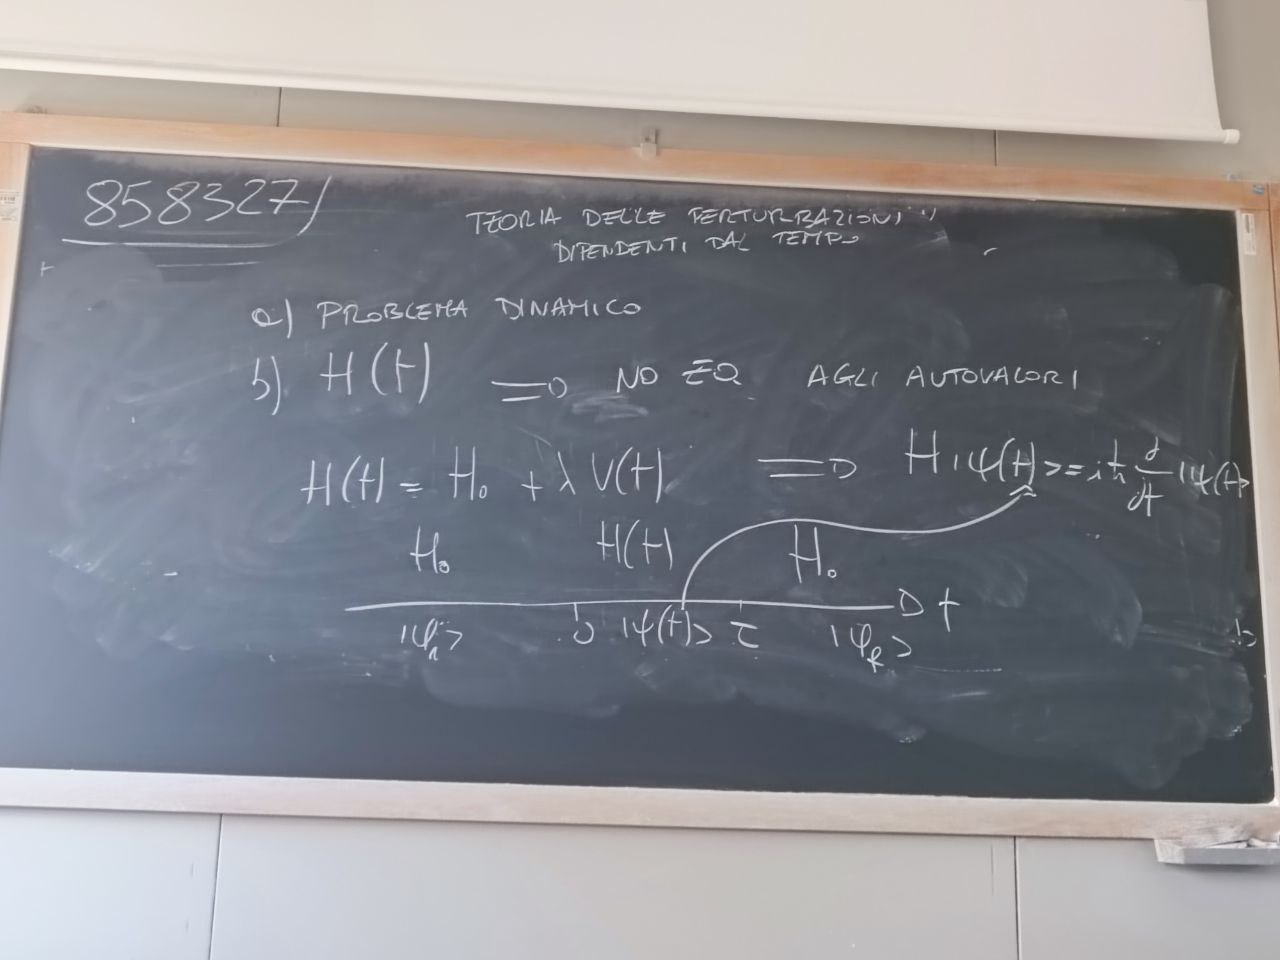 858327
TEORIA DELLE PERTURBAZIONI
DIPENDENTI DAL TEMPO
a) PROBLEMA DINAMICO
b) H(t) ⇒ NO EQ. AGLI AUTOVALORI
H(t) = H₀ + λ V(t) ⇒ H|ψ(t)> = iħ d/dt |ψ(t)>
H₀ H(t) H₀
t
|φₙ> 0 |ψ(t)> τ |φₖ>